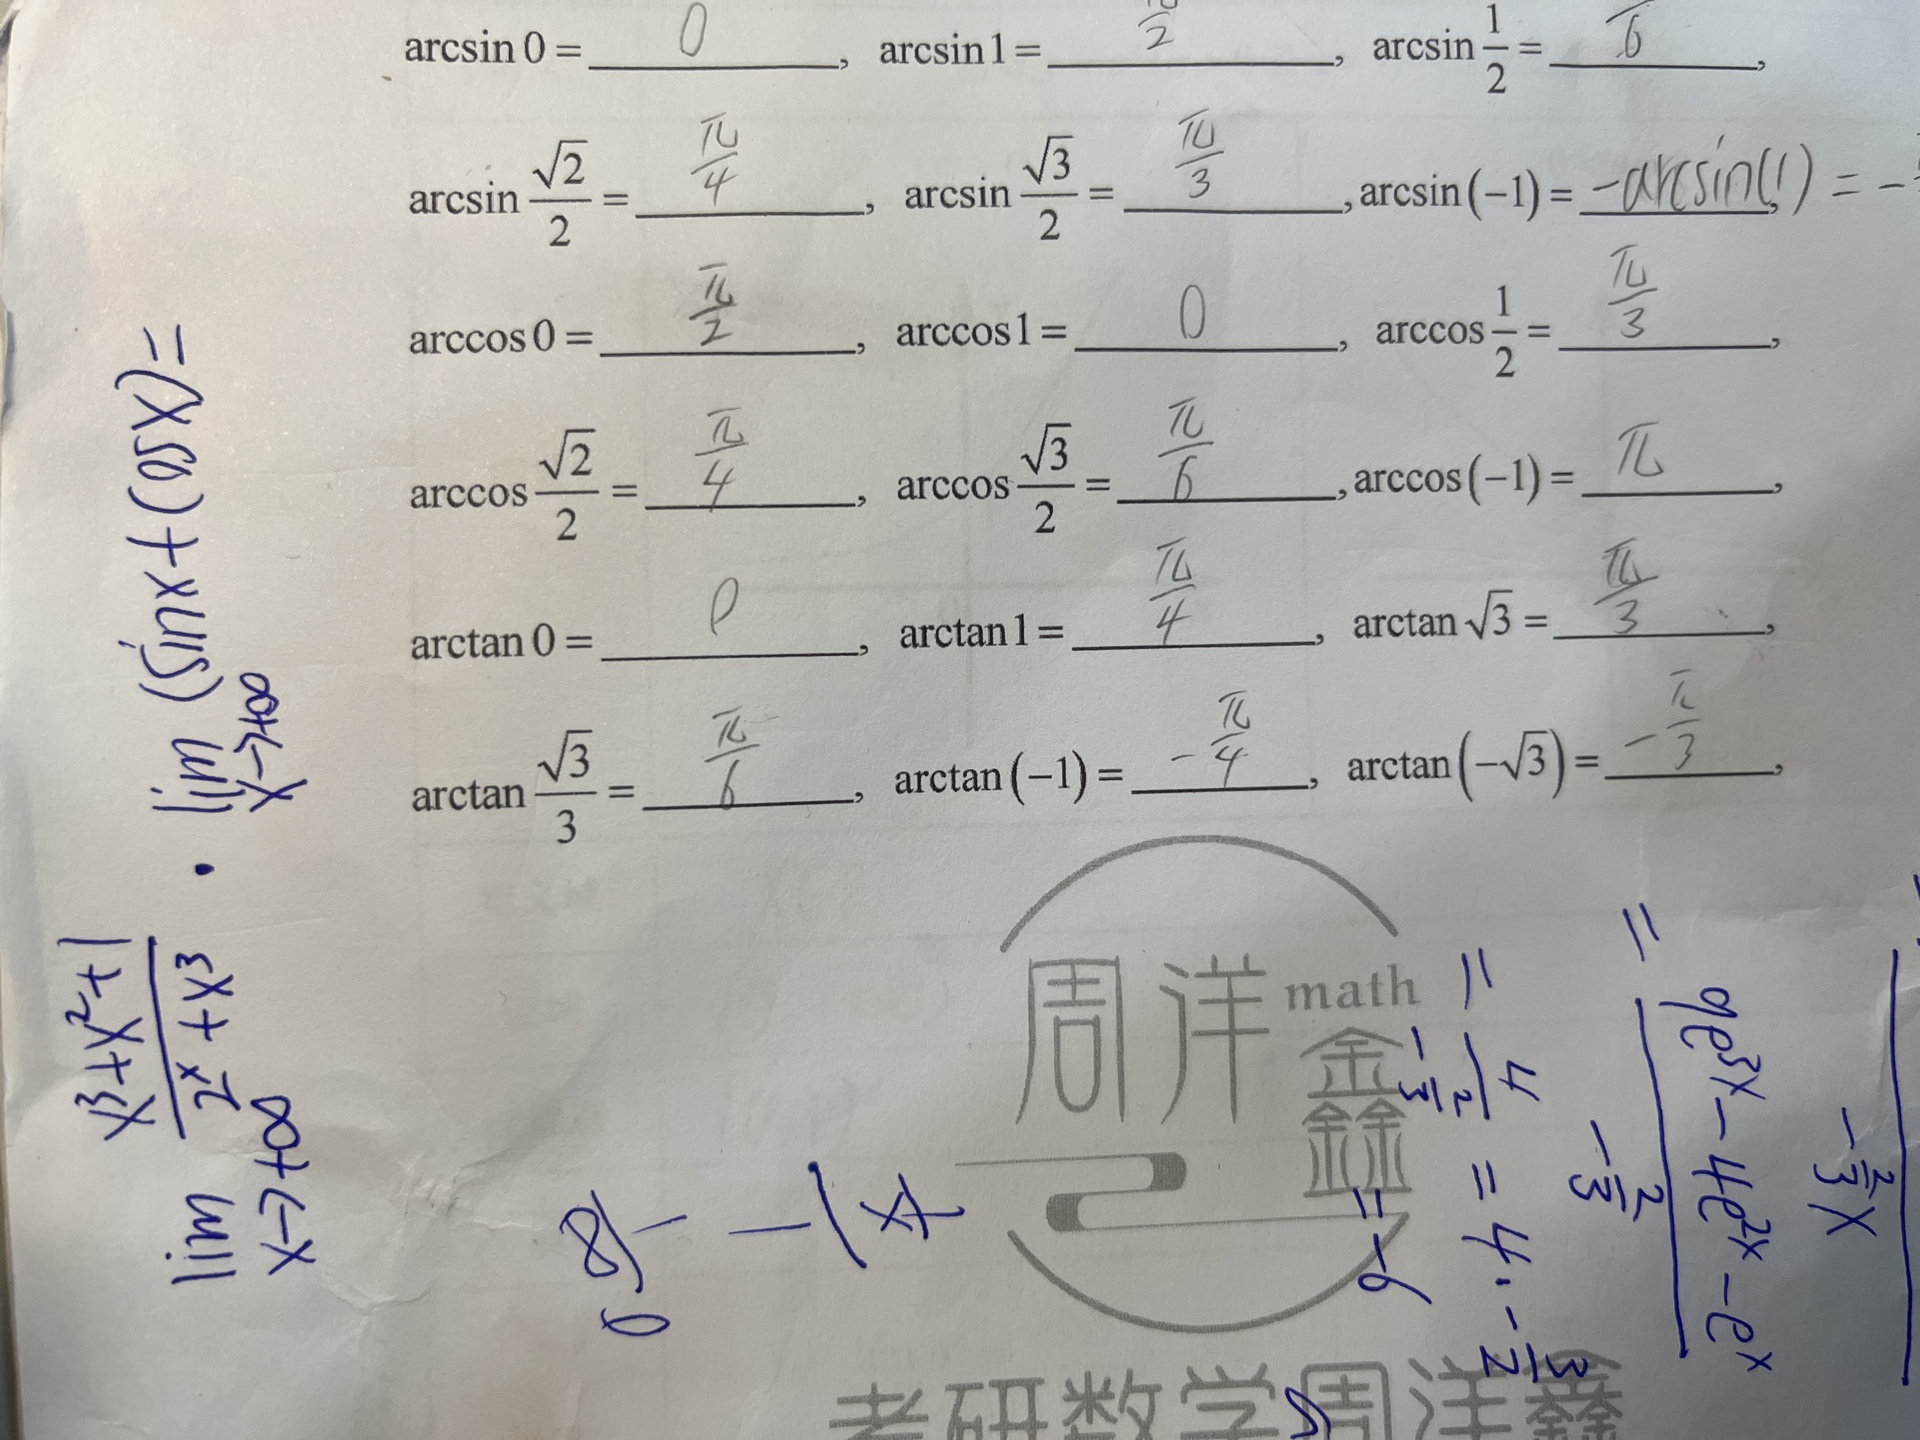 arcsin 0 = 0, arcsin 1 = π/2, arcsin 1/2 = π/6,
arcsin √2/2 = π/4, arcsin √3/2 = π/3, arcsin(−1) = -arcsin(1) = -
arccos 0 = π/2, arccos 1 = 0, arccos 1/2 = π/3,
arccos √2/2 = π/4, arccos √3/2 = π/6, arccos(−1) = π,
arctan 0 = 0, arctan 1 = π/4, arctan √3 = π/3,
arctan √3/3 = π/6, arctan(−1) = -π/4, arctan(−√3) = -π/3,
lim x→+∞ (x³+x²+1)/(2ˣ+x³) · lim x→+∞ (sinx+cosx) =
周洋 math
鑫
= (9e³ˣ-4e²ˣ-eˣ)/(-2/3)
-2/3 x
= 4/(-2/3) = 4·-3/2
= -6
考研数学周洋鑫